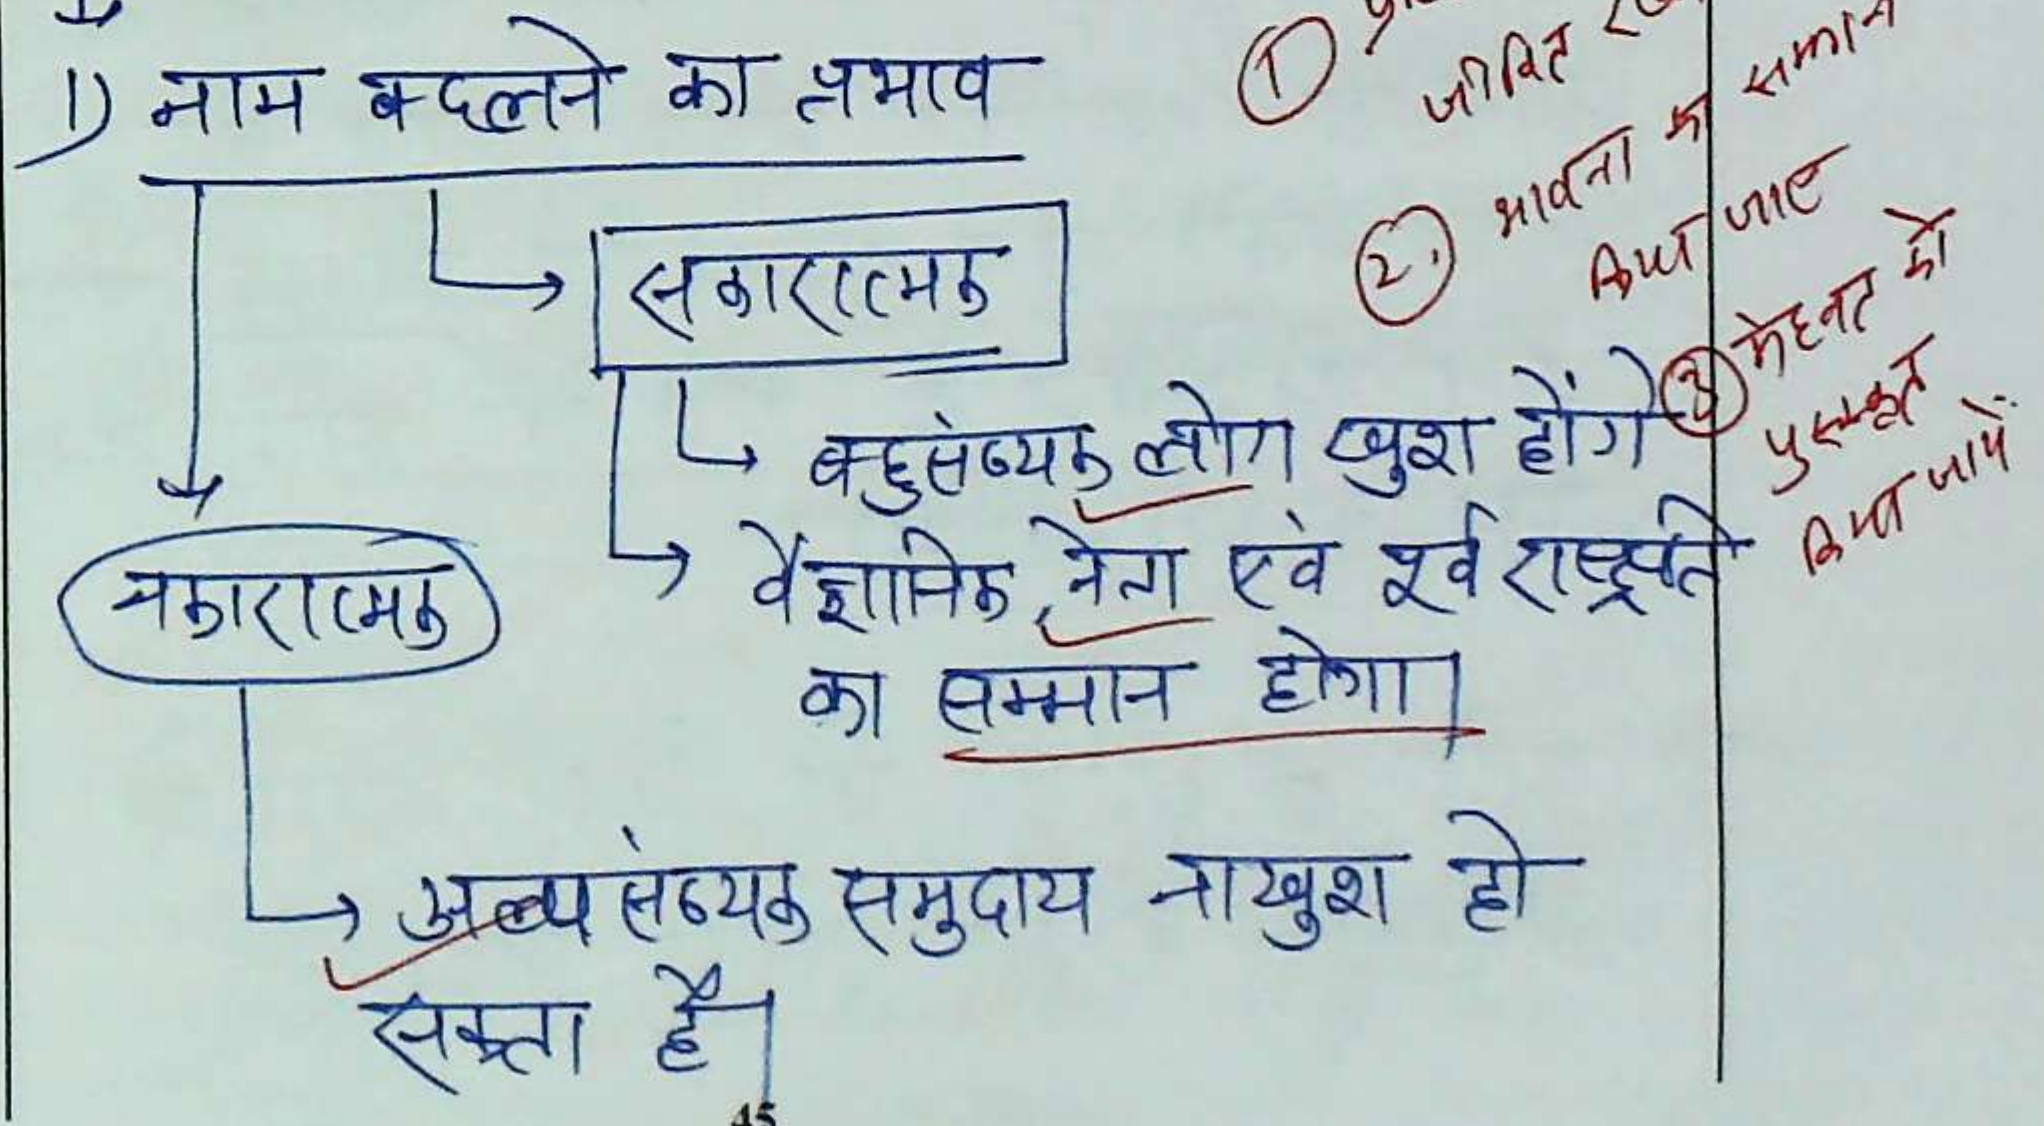 1) नाम बदलने का प्रभाव
सकारात्मक
बहुसंख्यक लोग खुश होंगे
वैज्ञानिक, नेता एवं पूर्व राष्ट्रपति
का सम्मान होगा।
नकारात्मक
अल्पसंख्यक समुदाय नाखुश हो
सकता है।
45
①
जीवित
②. भावना का सम्मान
किया जाए
③ मेहनत को
पुरस्कृत
किया जाये